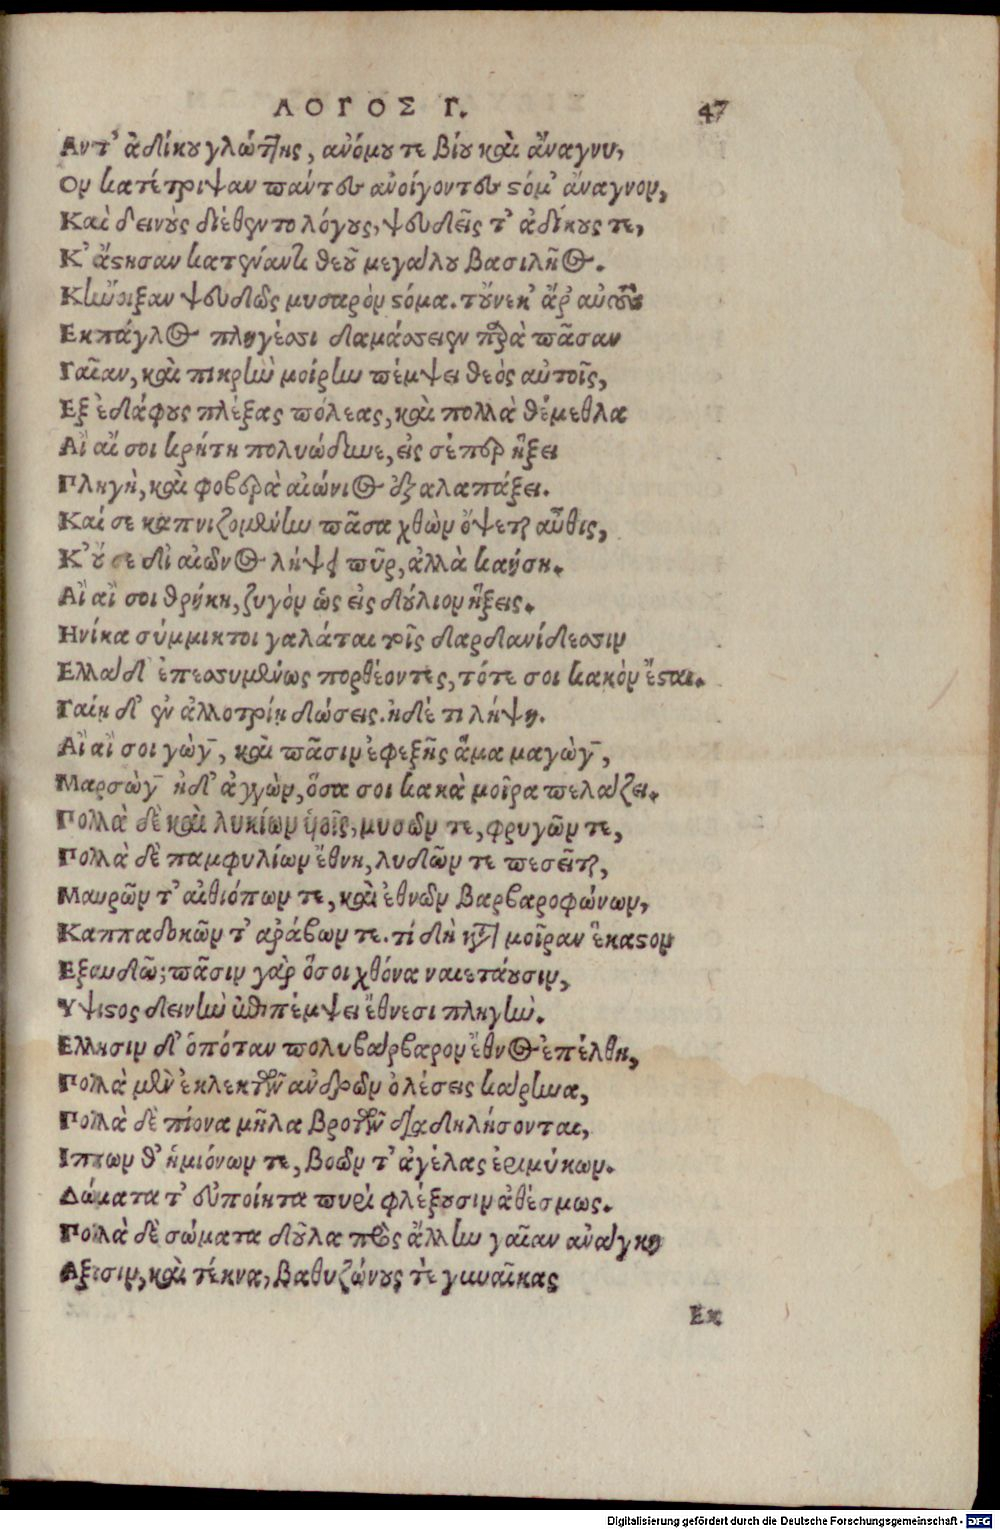 ΛΟΓΟΣ Γ. 47
Αντ' ἀδίκου γλώττης, ἀνόμου τε βίου καὶ ἄναγνυ,
Ον κατέτριψαν πάντες ἀνοίγοντες στόμ' ἄναγνον,
Καὶ δεινοὺς διέθεντο λόγους, ψευδεῖς τ' ἀδίκους τε,
Κ' ἄστησαν κατεναντι θεοῦ μεγάλου βασιλῆος.
Κἠνοιξαν ψευδῶς μυσαρὸν στόμα. τοὔνεκ' ἄρ' αὐτοὺς
Εκπάγλος πληγέσσι δαμάσσειεν παρὰ πᾶσαν
Γαῖαν, καὶ πικρὴν μοίρην πέμψει θεὸς αὐτοῖς,
Εξ ἐδάφους πλέξας πόλεας, καὶ πολλὰ θέμεθλα
Αἲ αἴ σοι κρήτη πολυώδυνε, εἰς σέ περ ἥξει
Πληγὴ, καὶ φοβερὰ αἰώνιος ἐξαλαπάξει.
Καί σε καπνιζομένην πᾶσα χθὼν ὄψεται αὖθις,
Κ' οὔ σε δι αἰῶνος λήψει πῦρ, ἀλλὰ καήσῃ.
Αἲ αἴ σοι θρήκη, ζυγὸν ὡς εἰς δούλιον ἥξεις.
Ηνίκα σύμμικτοι γαλάται τρῖς δαρδανίδεσσιν
Ελλάδ' ἐπεσσυμένως πορθέοντες, τότε σοι κακὸν ἔσται.
Γαίῃ δ' ἐν ἀλλοτρίῃ δώσεις. ἠδέ τι λήψῃ.
Αἲ αἴ σοι γώγ̅, καὶ πᾶσιν ἐφεξῆς ἅμα μαγώγ̅,
Μαρσώγ̅ ἠδ' ἀγγὼν, ὅσα σοι κακὰ μοῖρα πελάζει.
Πολλὰ δὲ καὶ λυκίων υἱοῖς, μυσῶν τε, φρυγῶν τε,
Πολλὰ δὲ παμφυλίων ἔθνη, λυδῶν τε πεσεῖται,
Μαυρῶν τ' αἰθιόπων τε, καὶ ἐθνῶν βαρβαροφώνων,
Καππαδοκῶν τ' ἀράβων τε. τί δὴ κατὰ μοῖραν ἕκαστον
Εξαυδῶ; πᾶσιν γὰρ ὅσοι χθόνα ναιετάουσιν,
Υψιστος δεινὴν ἐπιπέμψει ἔθνεσι πληγήν.
Ελλησιν δ' ὁπόταν πολυβάρβαρον ἔθνος ἐπέλθῃ,
Πολλὰ μὲν ἐκλεκτῶν ἀνδρῶν ὀλέσεις κάρηνα,
Πολλὰ δὲ πίονα μῆλα βροτῶν διαδηλήσονται,
Ιππων θ' ἡμιόνων τε, βοῶν τ' ἀγέλας ἐριμύκων.
Δώματα τ' εὐποίητα πυρὶ φλέξουσιν ἀθέσμως.
Πολλὰ δὲ σώματα δοῦλα πρὸς ἄλλην γαῖαν ἀνάγκῃ
Αξεισιν, καὶ τέκνα, βαθυζώνους τὲ γυναῖκας
Εκ
Digitalisierung gefördert durch die Deutsche Forschungsgemeinschaft - DFG